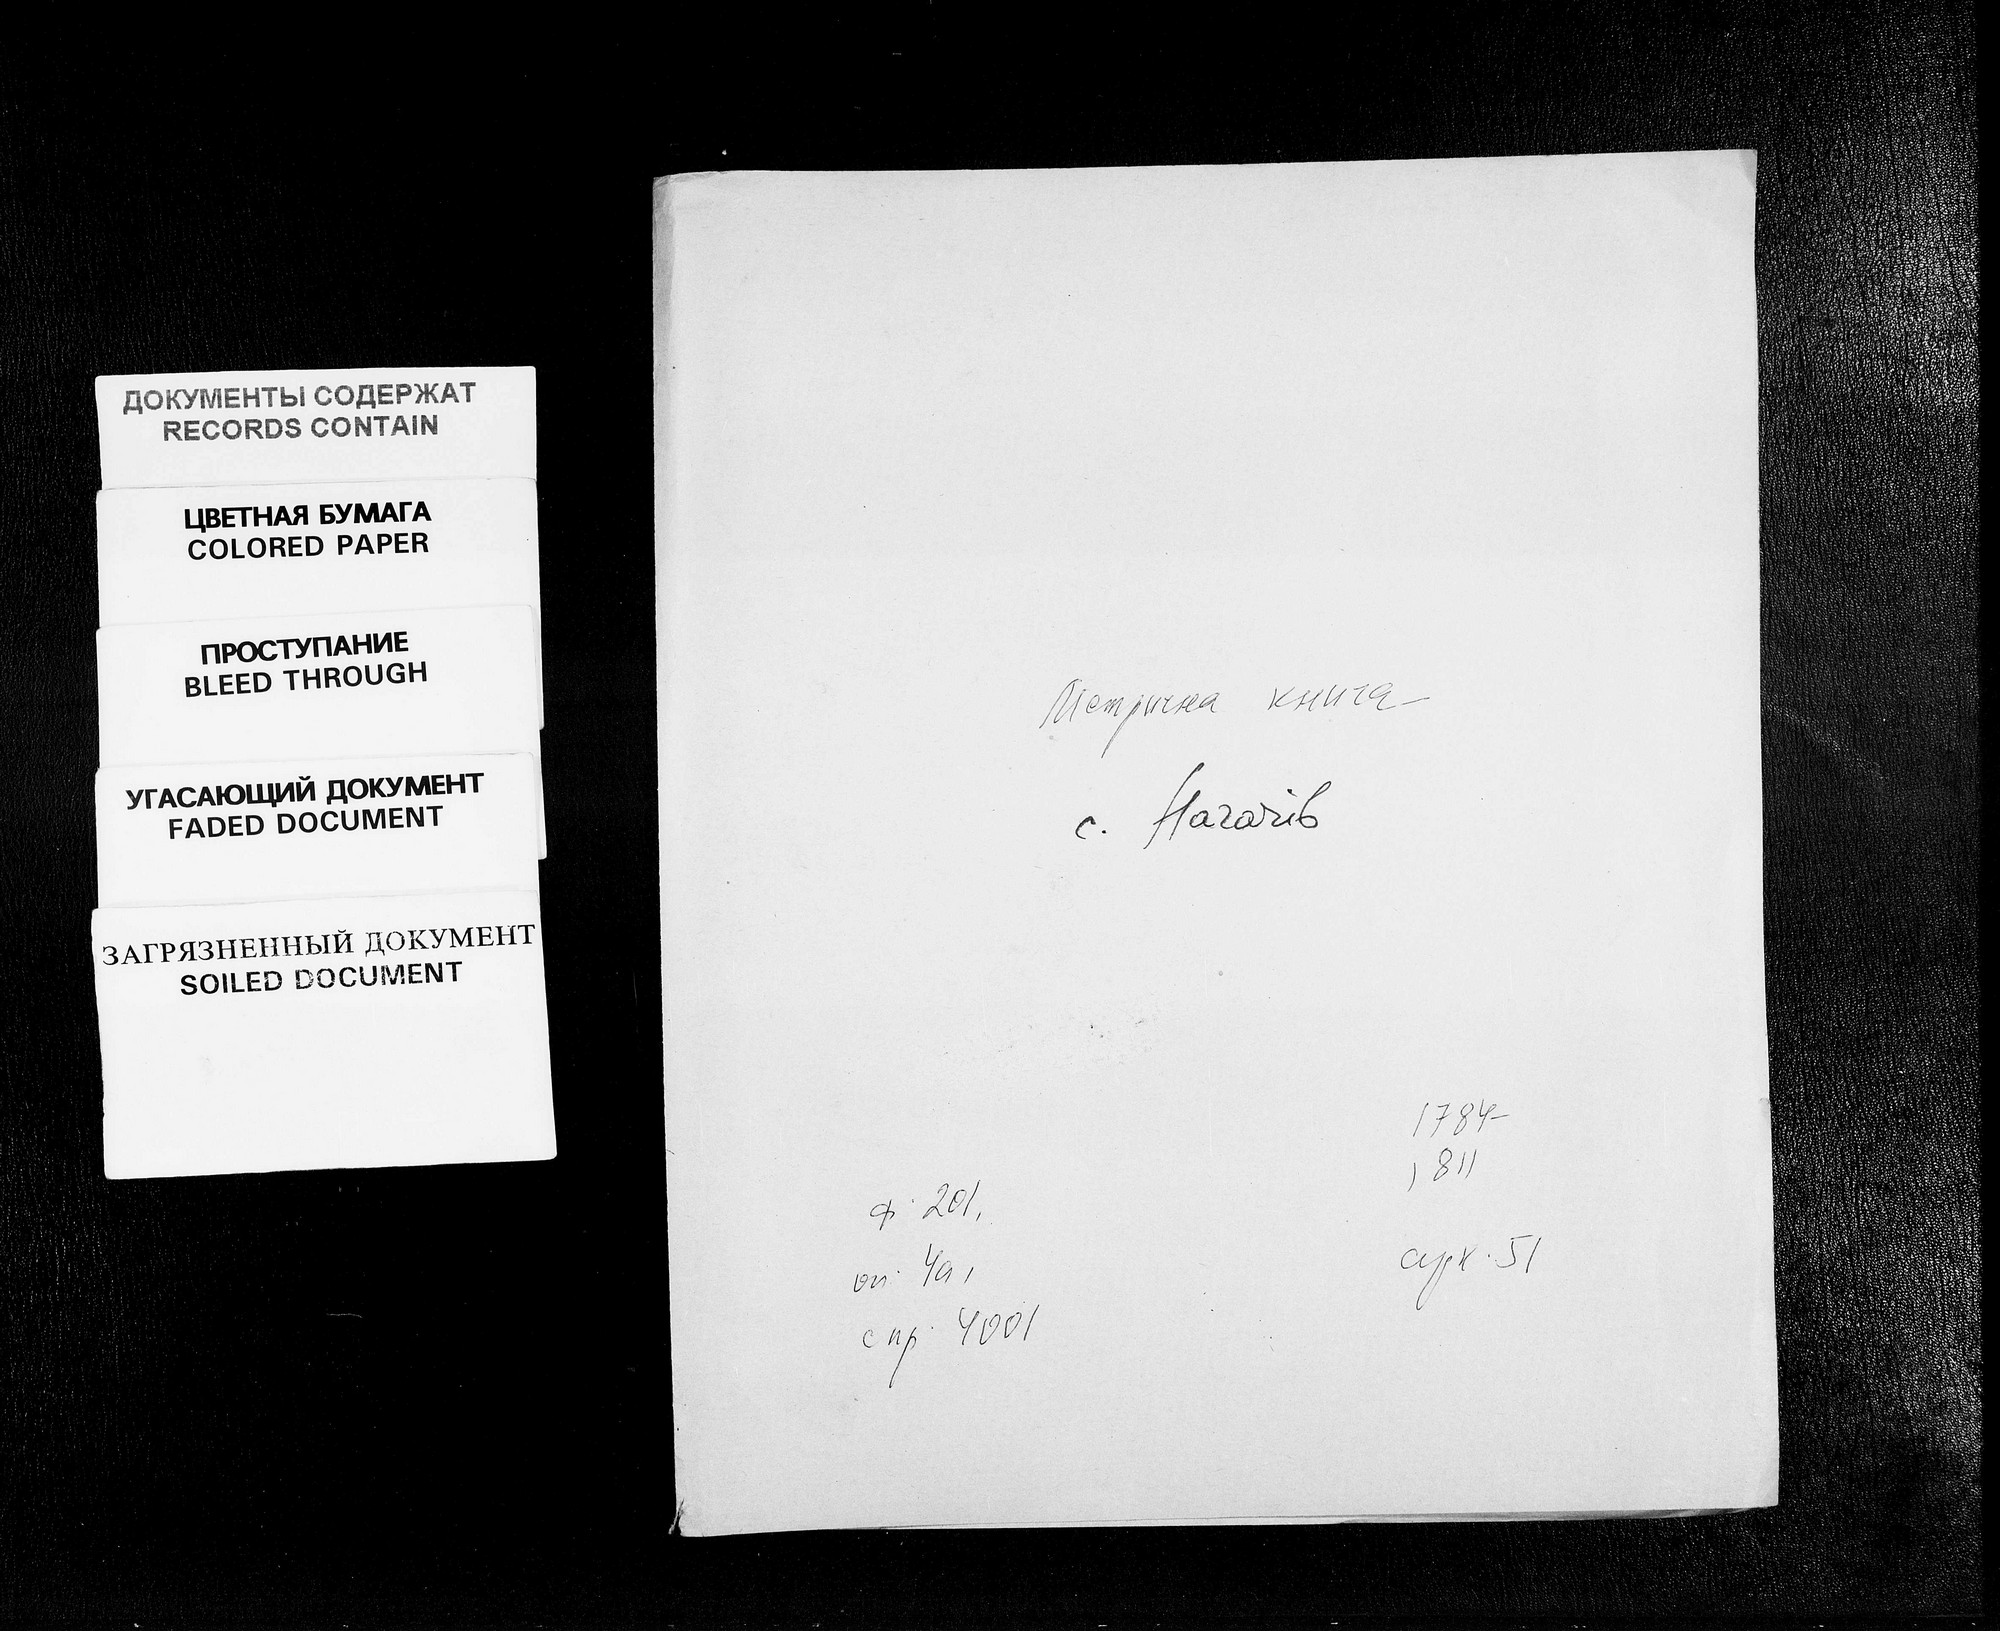 ДОКУМЕНТЫ СОДЕРЖАТ
RECORDS CONTAIN
ЦВЕТНАЯ БУМАГА
COLORED PAPER
ПРОСТУПАНИЕ
BLEED THROUGH
УГАСАЮЩИЙ ДОКУМЕНТ
FADED DOCUMENT
ЗАГРЯЗНЕННЫЙ ДОКУМЕНТ
SOILED DOCUMENT
Метрична книга
с. Нагачів
1784-
1811
ф. 201,
оп. 4а,
спр. 4001
арк. 51